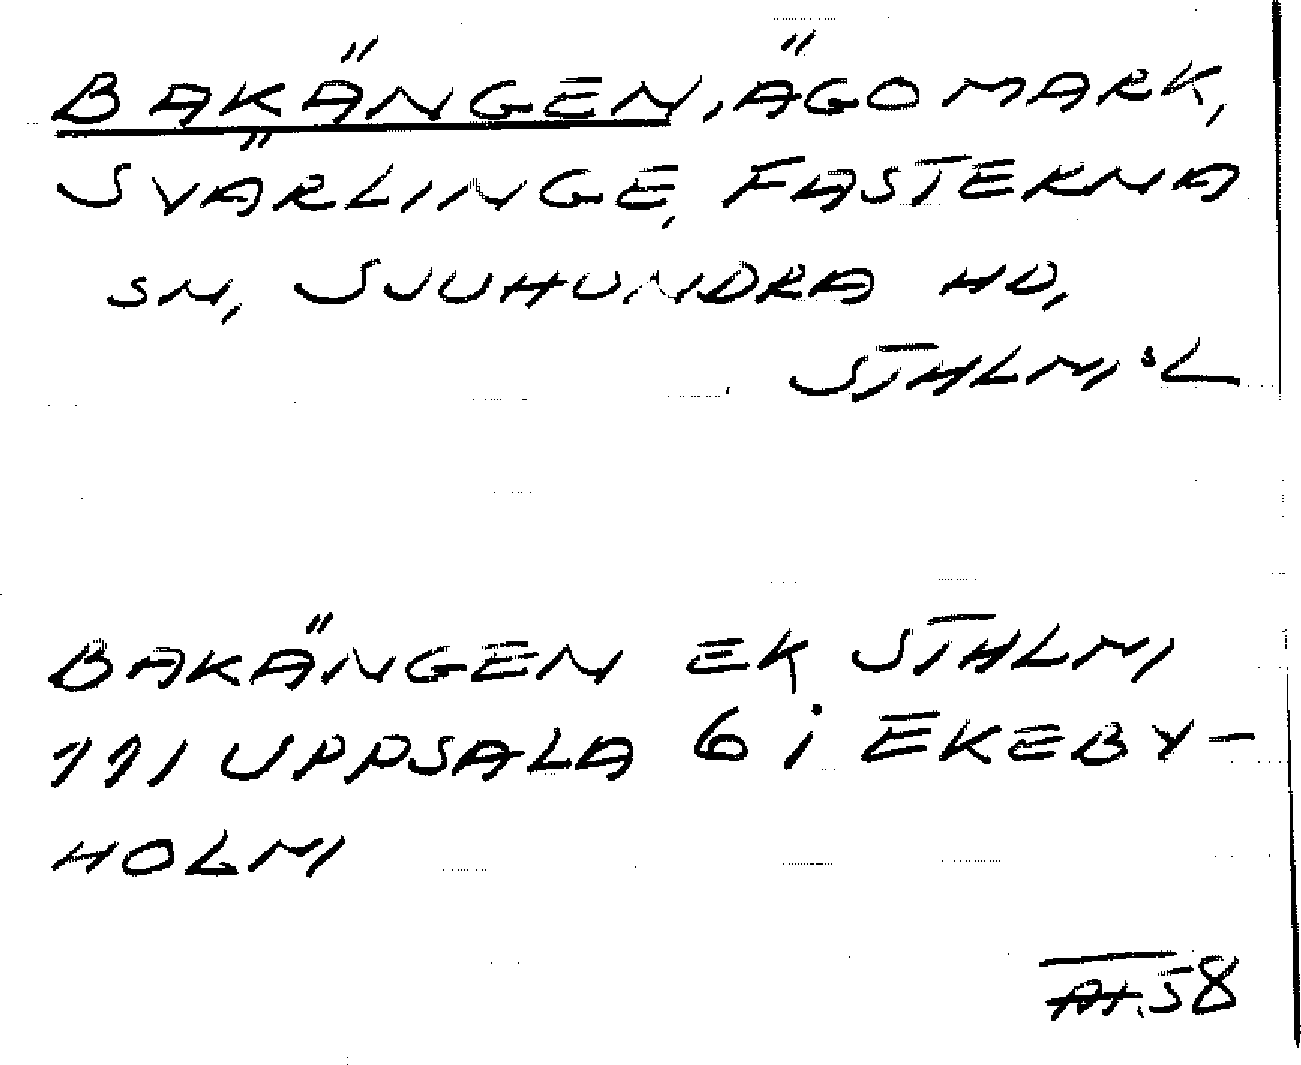 BAKÄNGEN, ÄGOMARK,
SVÄRLINGE, FASTERNA
SN, SJUHUNDRA HD,
STHLM:S L
BAKÄNGEN EK STHLM
111 UPPSALA 6 i EKEBY-
HOLM
AH. 58